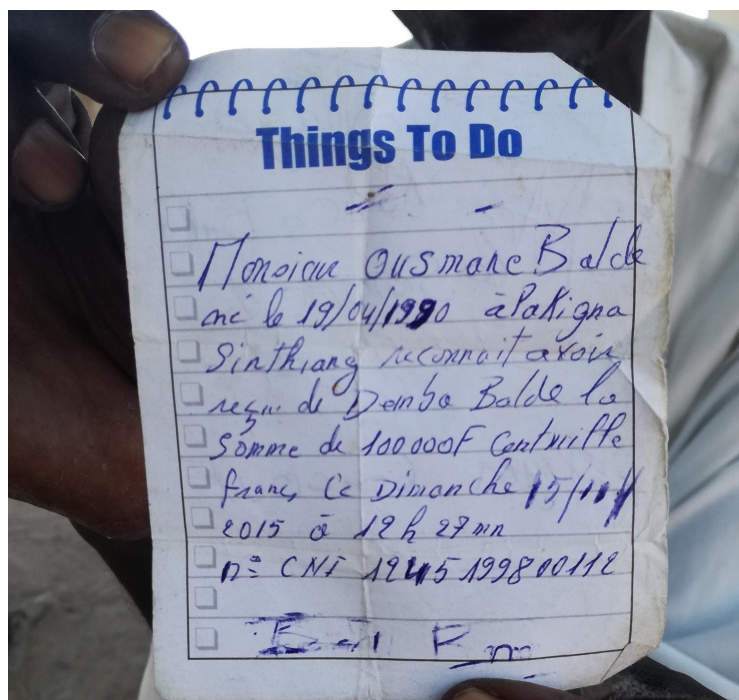 Things To Do
Monsieur Ousmane Balde
né le 19/04/1990 à Pakigna
Sinthiang reconnait avoir
reçu de Demba Balde la
Somme de 100000F Centmille
franc, Ce Dimanche 15/11/
2015 à 12h 27mn
n° CNI 1245199800112